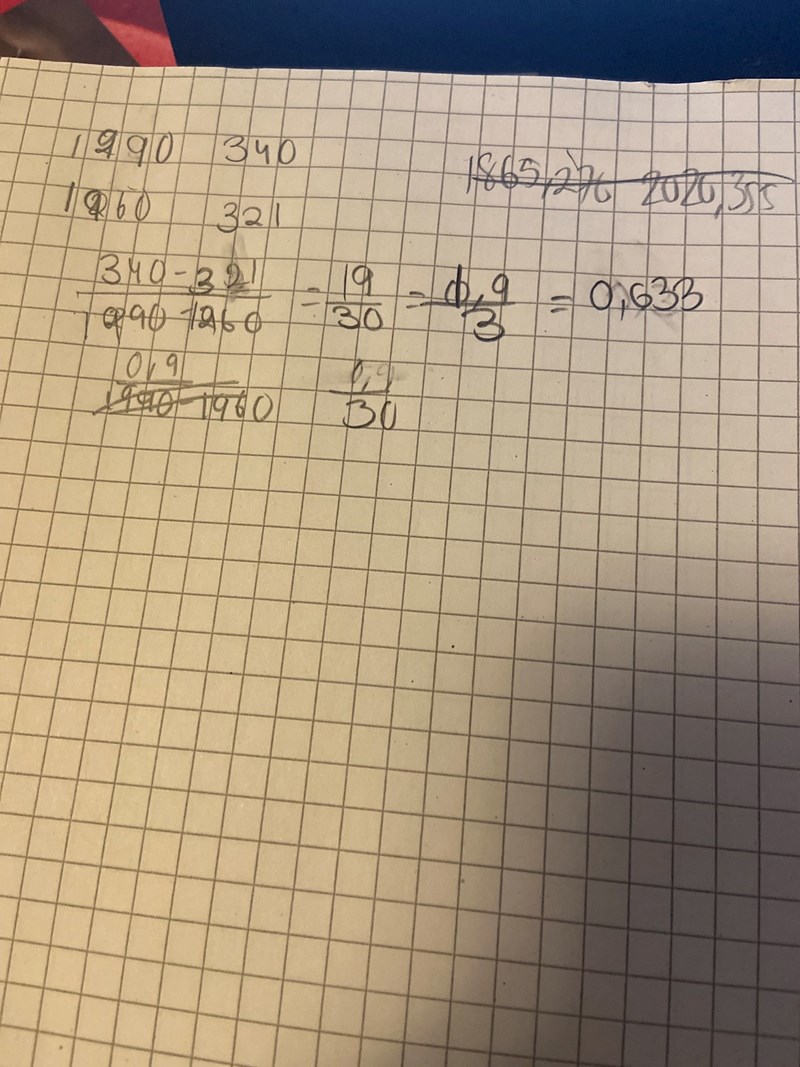 1990 340
1865,276 2020,355
1960 321
340-321 / 1990-1960 = 19/30 = 1,9/3 = 0,633
0,9 / 1990-1960 0,9/30